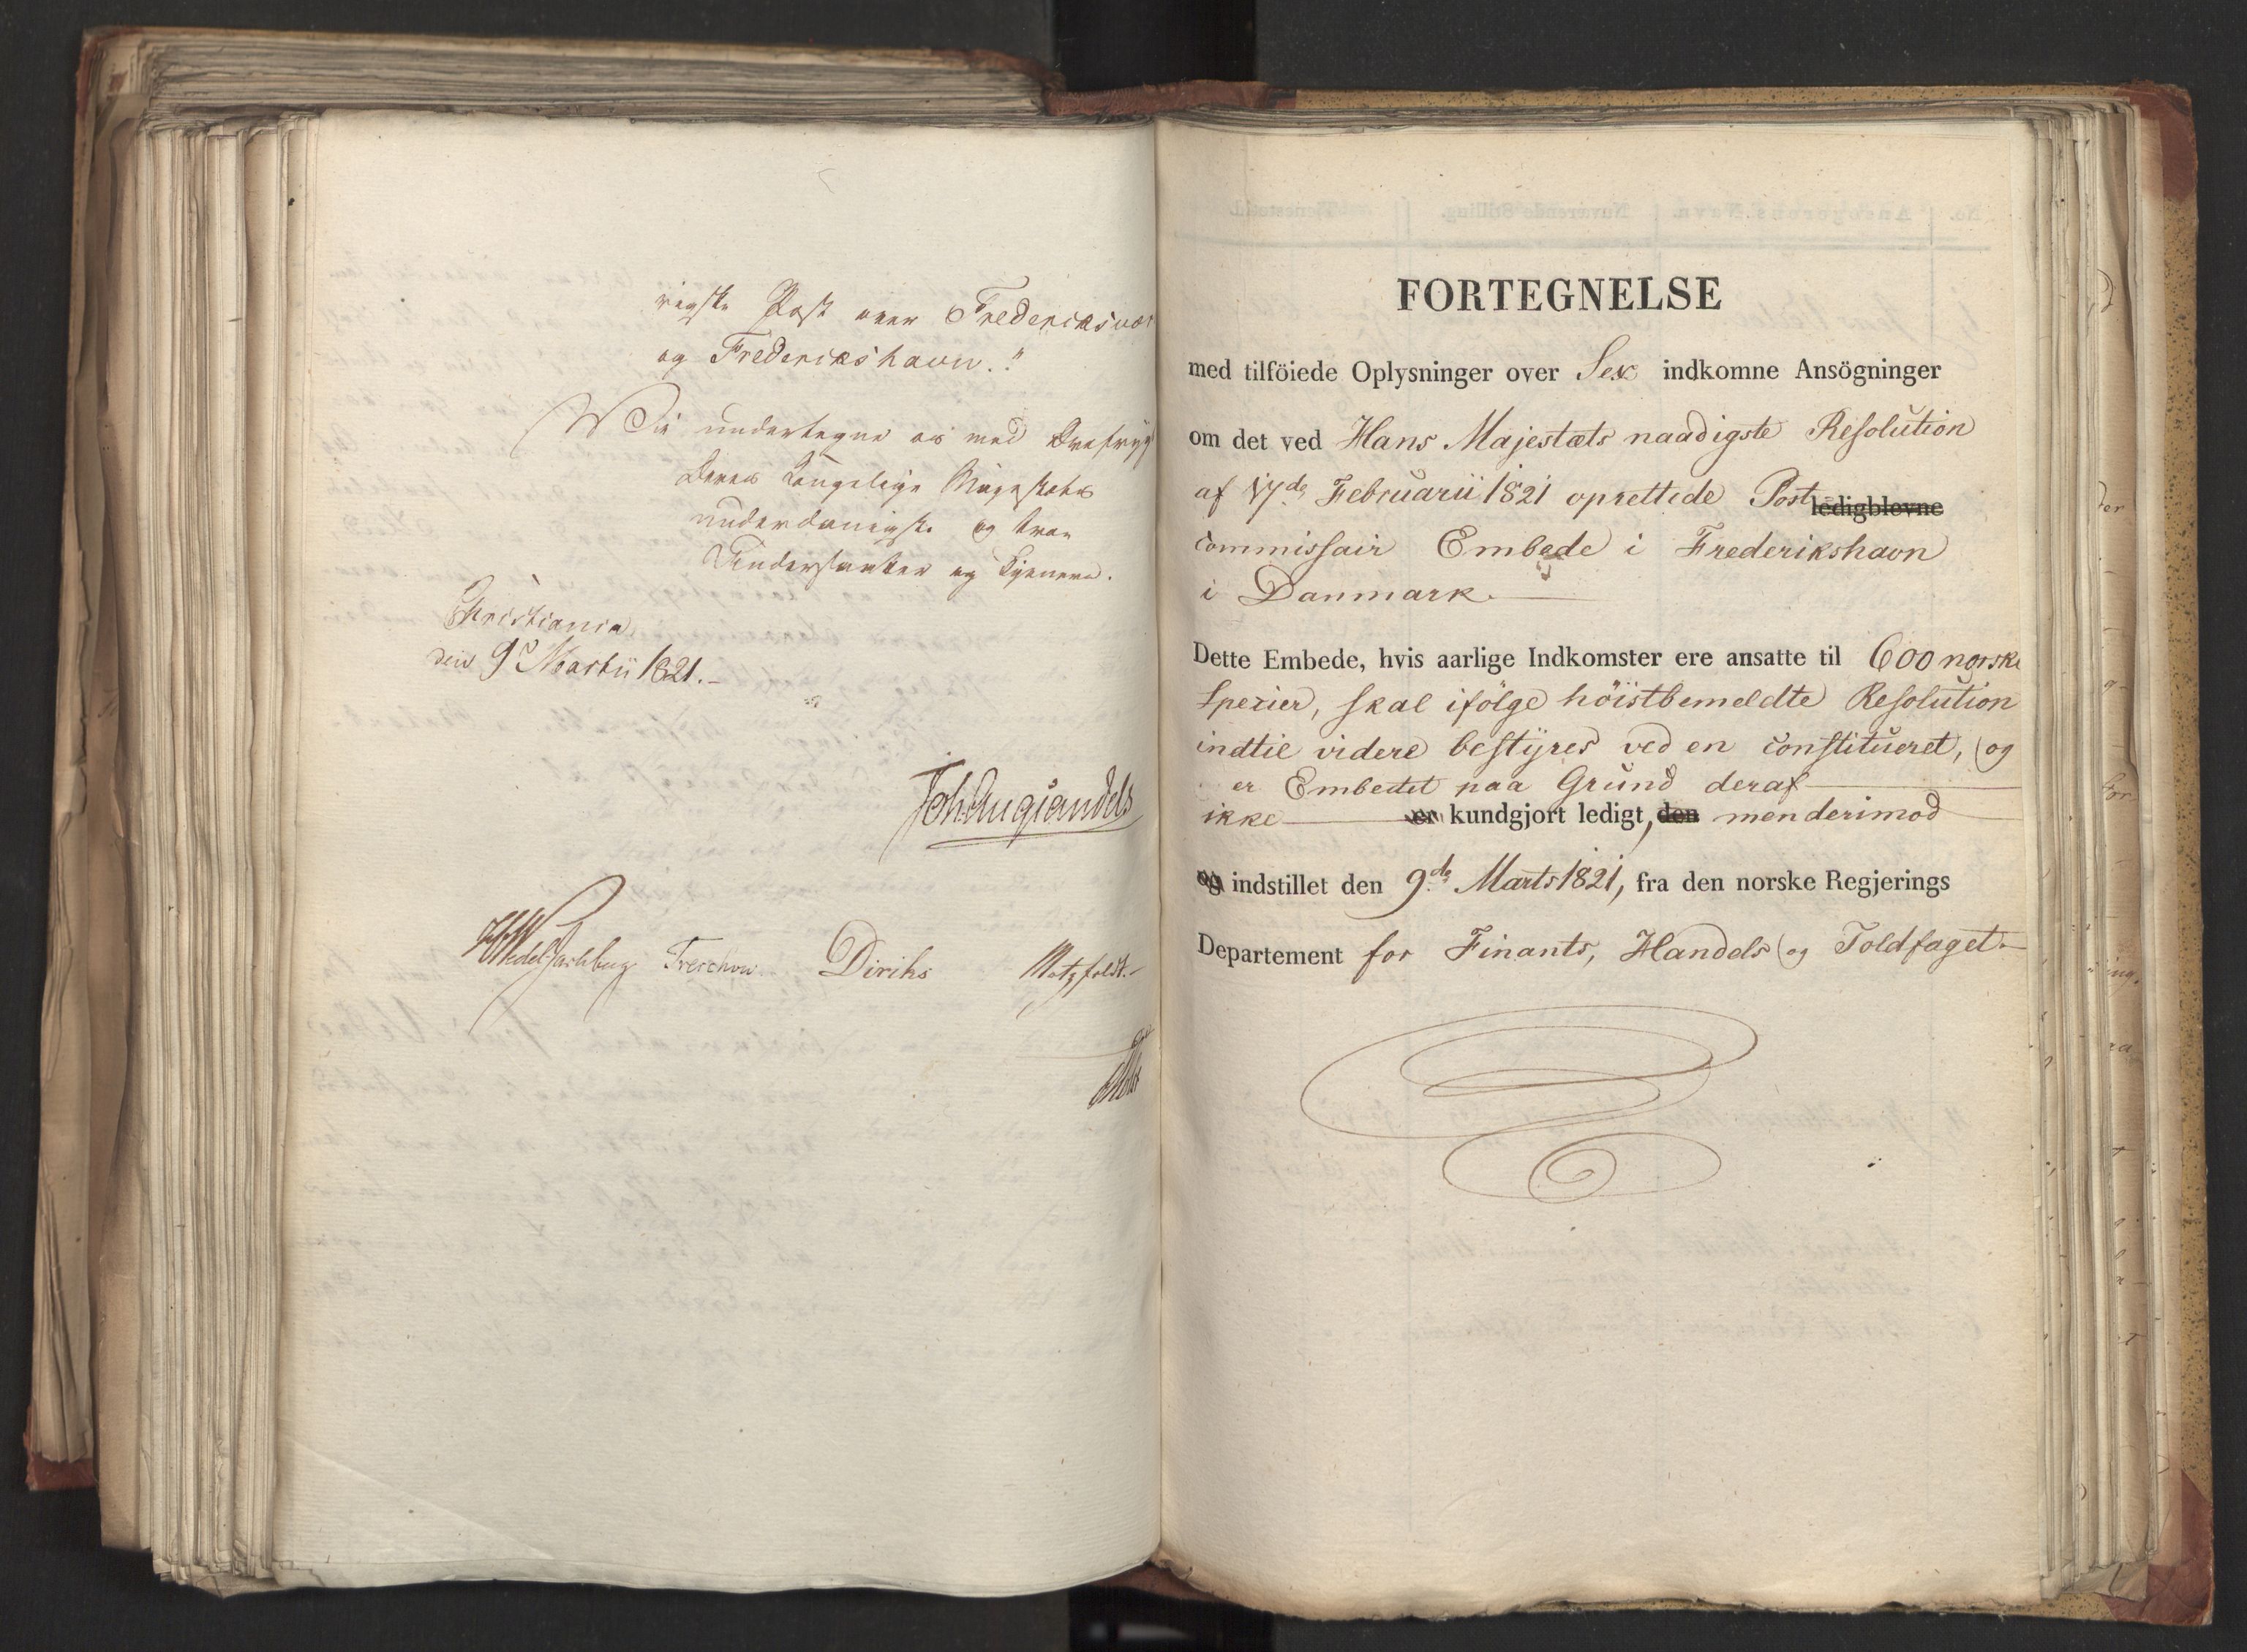 rigste Post over Frederiksvær
og Frederikshavn."
Vi undertegne os med Ærefrygt
Deres Kongelige Majestæts
underdanigste og troe
Undersaatter og Tjenere.
Christiania
den 9de Martii 1821.-
Joh: Aug: Sandels
HWedel Jarlsberg Treschow Diriks Motzfeldt.-
FORTEGNELSE
med tilföiede Oplysninger over Sex indkomne Ansögninger
om det ved Hans Majestæts naadigste Resolution
af 17de Februarii 1821 oprettede Post ledigblevne
commissair Embede i Frederikshavn
i Danmark.
Dette Embede, hvis aarlige Indkomster ere ansatte til 600 norske
Spezier, skal ifölge höistbemeldte Resolution
indtil videre bestyres ved en constitueret, og
er Embedet paa Grund deraf
ikke er kundgjort ledigt, den men derimod
og indstillet den 9de Marts 1821, fra den norske Regjerings
Departement for Finants, Handels og Toldfaget.